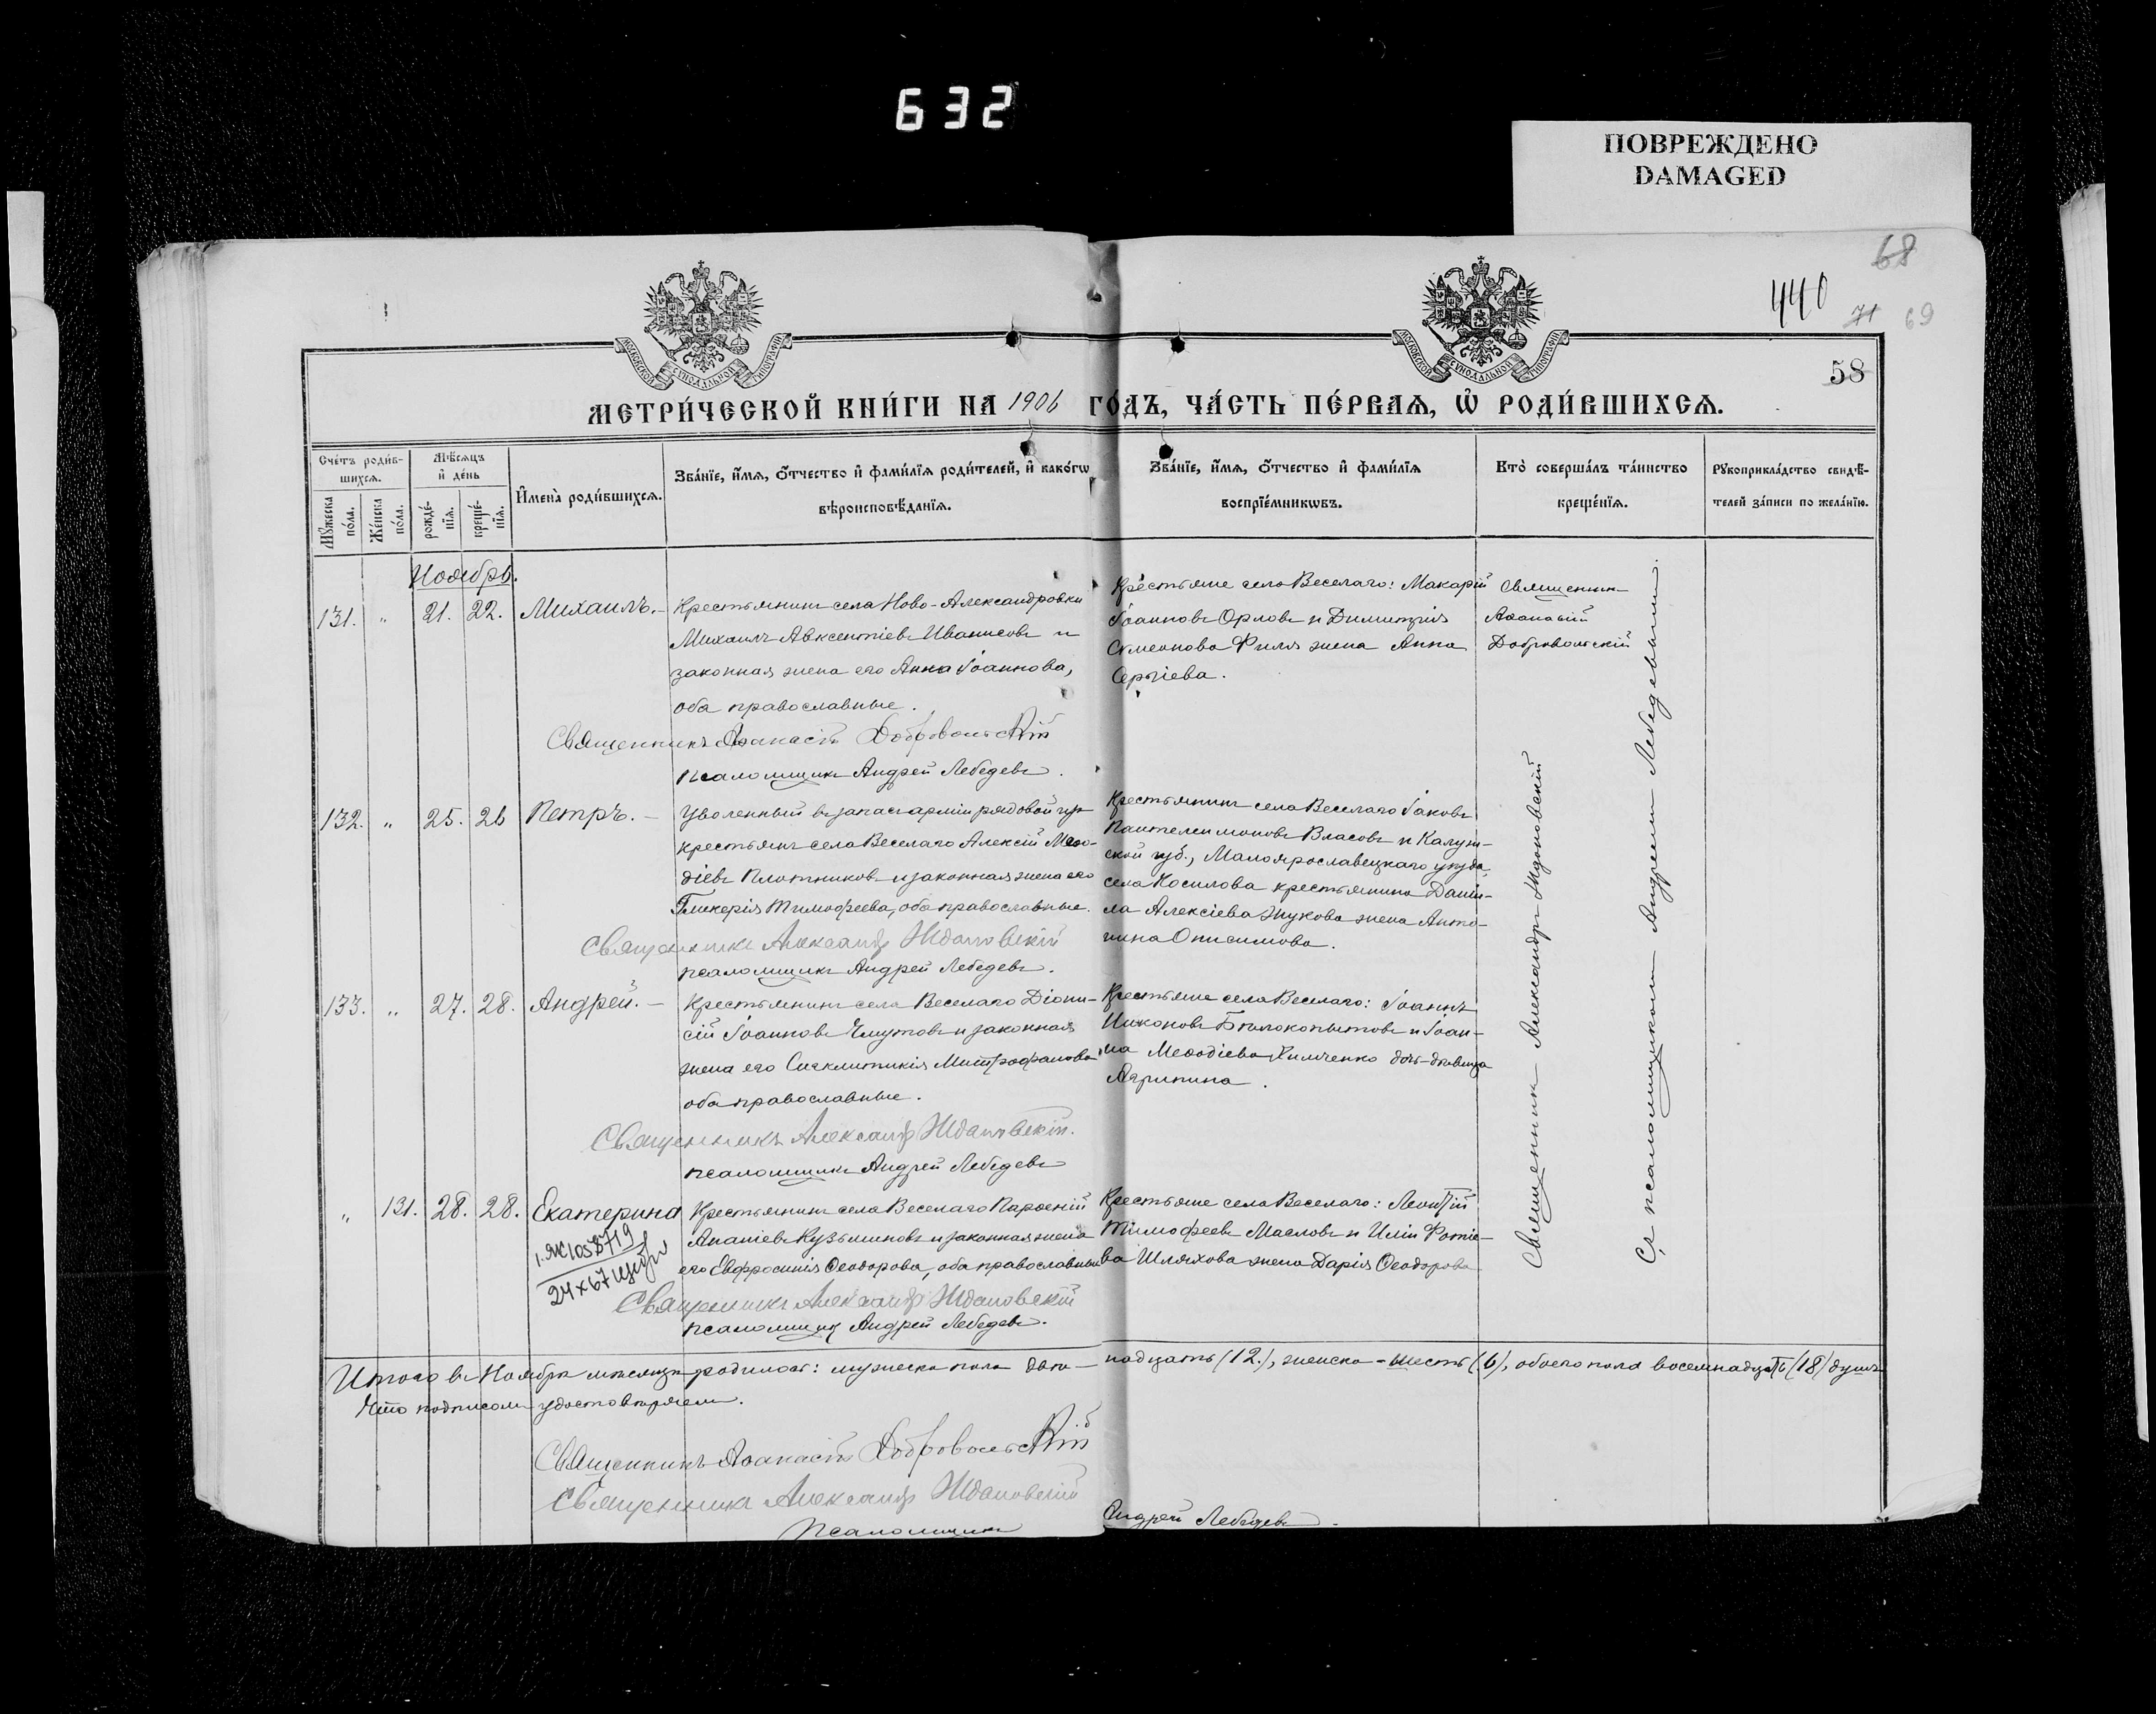 632
ПОВРЕЖДЕНО
DAMAGED
68
440
71 69
58
МОСКОВСКОЙ СѴНОДАЛЬНОЙ ТИПОГРАФІИ
МОСКОВСКОЙ СѴНОДАЛЬНОЙ ТИПОГРАФІИ
МЕТРИ́ЧЕСКОЙ КНИ́ГИ НА 1906 ГО́ДЪ, ЧА́СТЬ ПЕ́РВАѦ, Ѡ҆ РОДИ́ВШИХСѦ.
Сче́тъ роди́в-
шихсѧ.
Мꙋ́жеска по́ла.
Же́нска по́ла.
Мѣ́сѧцъ
и҆ де́нь
рожде́-
нїѧ.
креще́-
нїѧ.
И҆мена̀ роди́вшихсѧ.
Зва́нїе, и҆́мѧ, ѻ҆́тчество и҆ фами́лїѧ роди́телей, и҆ како́гѡ
вѣроисповѣ́данїѧ.
Зва́нїе, и҆́мѧ, ѻ҆́тчество и҆ фами́лїѧ
воспрїе́мникѡвъ.
Кто̀ соверша́лъ та́инство
креще́нїѧ.
Рꙋкоприкла́дство свидѣ́-
телей за́писи по жела́нїю.
Ноябрь.
131. " 21. 22. Михаилъ.-
Крестьянинъ села Ново-Александровки
Михаилъ Авксентіевъ Иванисовъ и
законная жена его Анна Іоаннова,
оба православные.
Священникъ Аѳанасій Добровольскій
псаломщикъ Андрей Лебедевъ.
Крестьяне села Веселаго: Макарій
Іоанновъ Орловъ и Димитрія
Симеонова Филя жена Анна
Сергіева.
Священникъ
Аѳанасій
Добровольскій
132. " 25. 26 Петръ. -
Уволенный въ запасъ арміи рядовой изъ
крестьянъ села Веселаго Алексій Меѳо-
діевъ Плотниковъ и законная жена его
Гликерія Тимофеева, оба православные.
Священникъ Александръ Ждановскій
псаломщикъ Андрей Лебедевъ.
Крестьянинъ села Веселаго Іаковъ
Пантелеимоновъ Власовъ и Калуж-
ской губ., Малоярославецкаго уѣзда,
села Косилова крестьянина Дании-
ла Алексіева Жукова жена Анто-
нина Онисимова.
133. " 27. 28. Андрей. -
Крестьянинъ села Веселаго Діони-
сій Іоанновъ Чмутовъ и законная
жена его Синклитикія Митрофанова
оба православные.
Священникъ Александръ Ждановскій.
псаломщикъ Андрей Лебедевъ
Крестьяне села Веселаго: Іоаннъ
Никоновъ Бѣлокопытовъ и Іоан-
на Меѳодіева Химченко дочь-дѣвица
Агрипина.
" 131. 28. 28. Екатерина
1.ЯК 1058719
24x67
Крестьянинъ села Веселаго Парѳеній
Ананіевъ Кузьминовъ и законная жена
его Евфросинія Ѳеодорова, оба православные
Священникъ Александръ Ждановскій
псаломщикъ Андрей Лебедевъ.
Крестьяне села Веселаго: Леонтій
Тимофеевъ Масловъ и Иліи Фотіе-
ва Шляхова жена Дарія Ѳеодорова
Священникъ Александръ Ждановскій
Съ псаломщикомъ Андреемъ Лебедевымъ.
Итого въ Ноябрѣ мѣсяцѣ родилось: мужеска пола двѣ-надцать (12.), женска - шесть (6), обоего пола восемнадцать (18) душъ
Что подписомъ удостовѣряемъ.
Священникъ Аѳанасій Добровольскій
Священникъ Александръ Ждановскій
Псаломщикъ Андрей Лебедевъ.